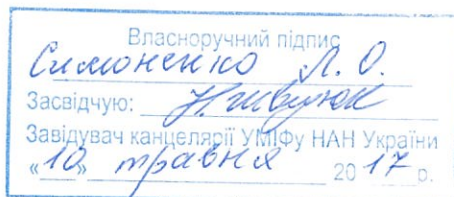 Власноручний підпис
Симоненко Л. О.
Засвідчую:
Завідувач канцелярії УМІФу НАН України
«10» травня 2017 р.